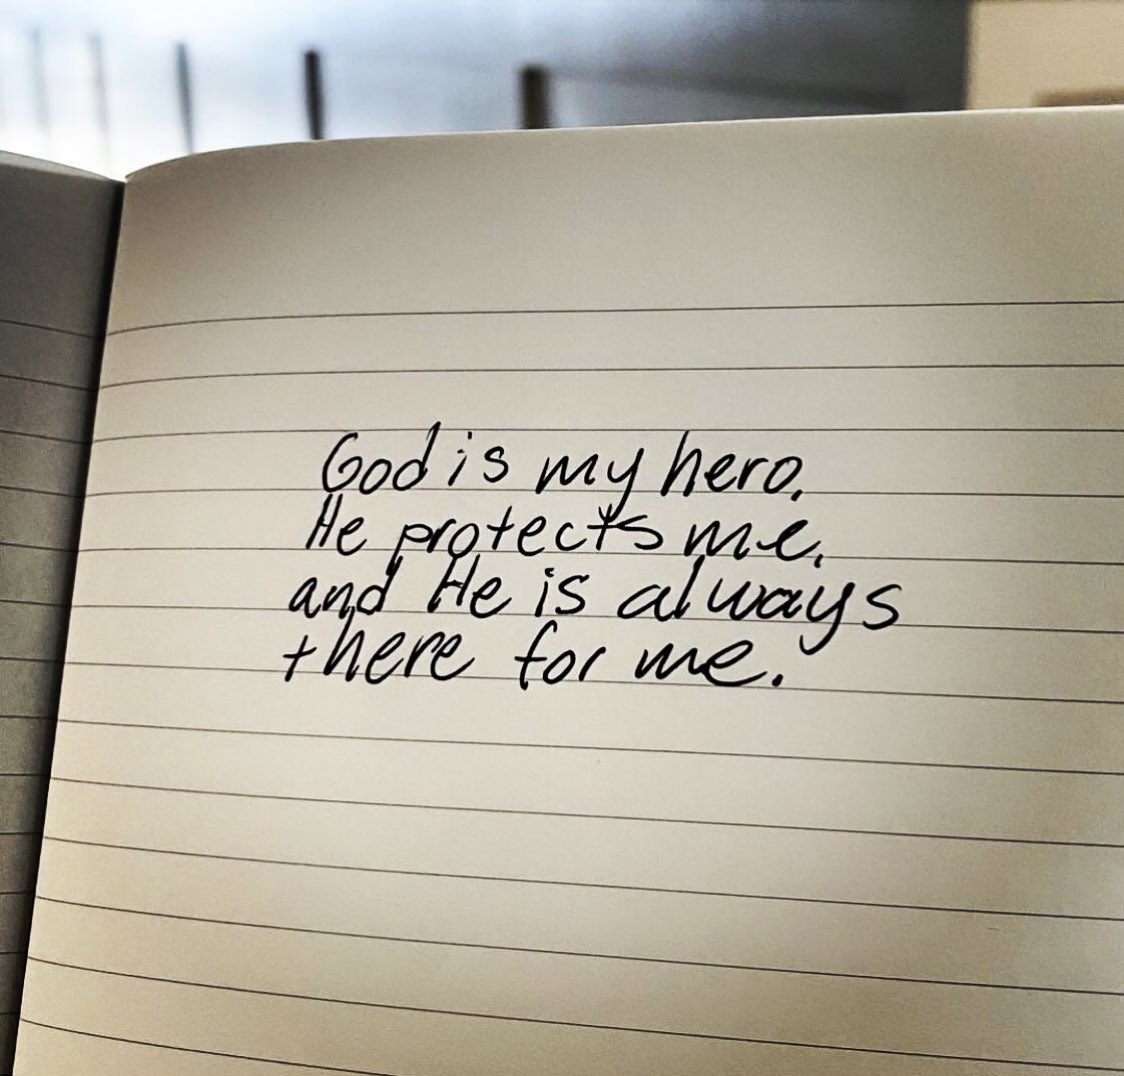 God is my hero.
He protects me,
and He is always
there for me.